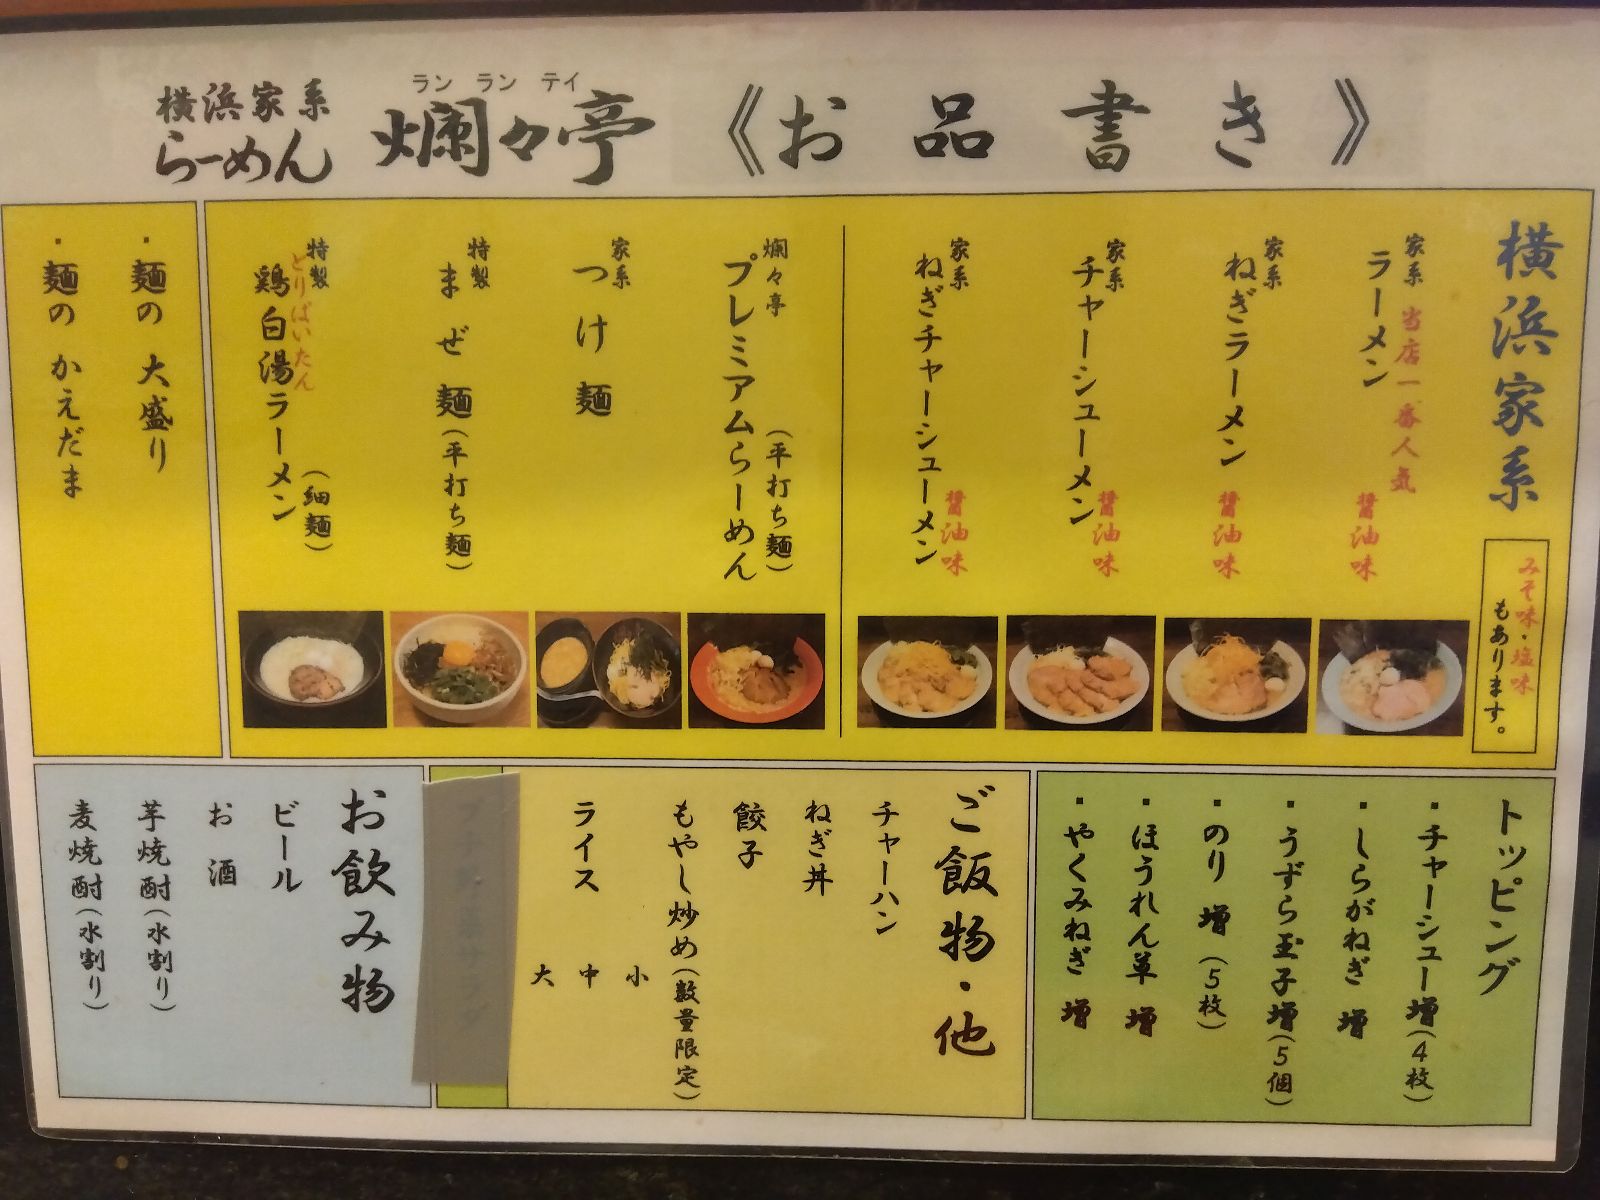 横浜家系
らーめん
ラン ラン テイ
爛々亭
《お品書き》
横浜家系
みそ味・塩味
もあります。
家系
ラーメン
当店一番人気
醤油味
家系
ねぎラーメン
醤油味
家系
チャーシューメン
醤油味
家系
ねぎチャーシューメン
醤油味
爛々亭
プレミアムらーめん
(平打ち麺)
家系
つけ麺
特製
まぜ麺(平打ち麺)
特製
とりぱいたん
鶏白湯ラーメン
(細麺)
・麺の 大盛り
・麺の かえだま
トッピング
・チャーシュー増(4枚)
・しらがねぎ 増
・うずら玉子増(5個)
・のり 増 (5枚)
・ほうれん草 増
・やくみねぎ 増
ご飯物・他
チャーハン
ねぎ丼
餃子
もやし炒め(数量限定)
ライス
小
中
大
お飲み物
ビール
お酒
芋焼酎(水割り)
麦焼酎(水割り)